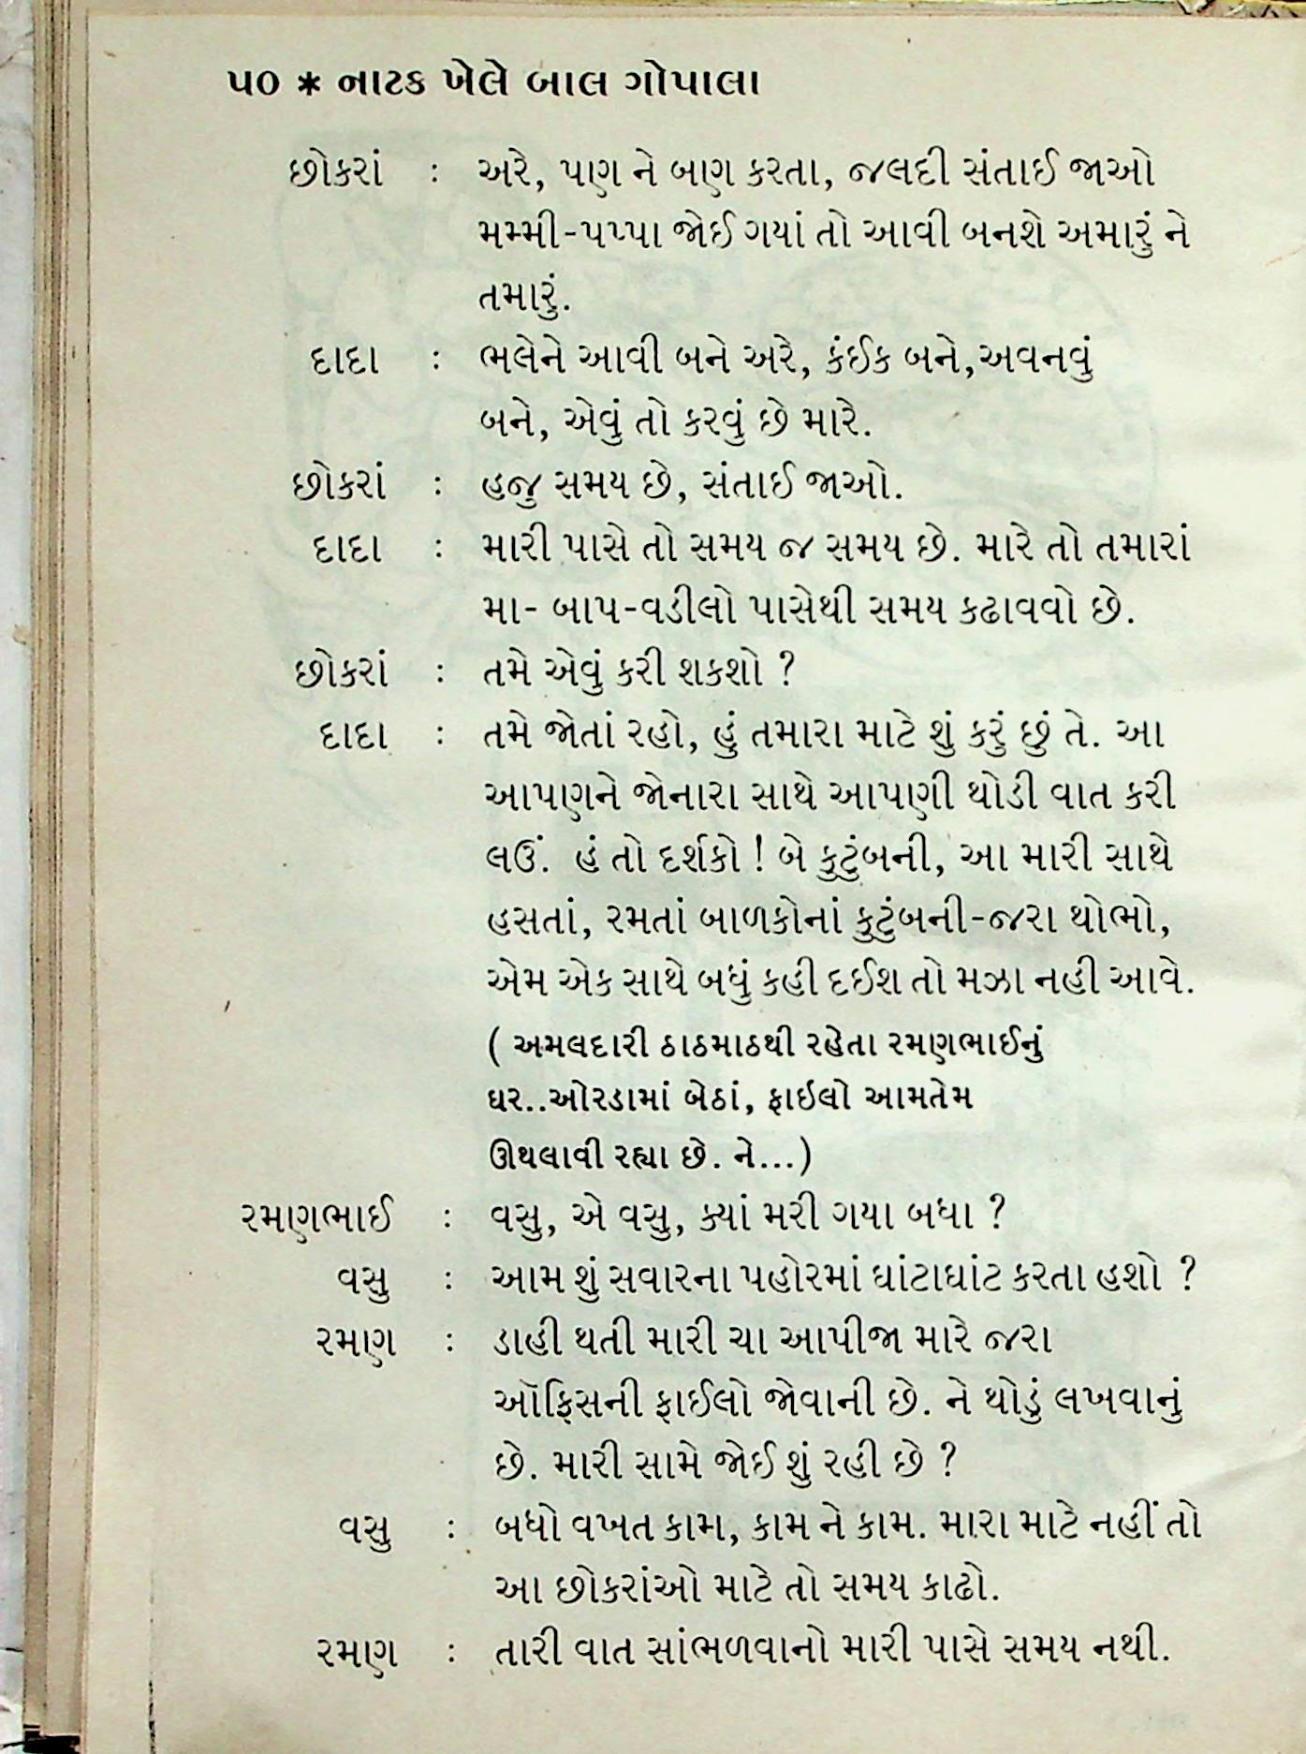 ૫૦ * નાટક ખેલે બાલ ગોપાલા
છોકરાં : અરે, પણ ને બણ કરતા, જલદી સંતાઈ જાઓ
મમ્મી-પપ્પા જોઈ ગયાં તો આવી બનશે અમારું ને
તમારું.
દાદા : ભલેને આવી બને અરે, કંઈક બને,અવનવું
બને, એવું તો કરવું છે મારે.
છોકરાં : હજુ સમય છે, સંતાઈ જાઓ.
દાદા : મારી પાસે તો સમય જ સમય છે. મારે તો તમારાં
મા- બાપ-વડીલો પાસેથી સમય કઢાવવો છે.
છોકરાં : તમે એવું કરી શકશો ?
દાદા : તમે જોતાં રહો, હું તમારા માટે શું કરું છું તે. આ
આપણને જોનારા સાથે આપણી થોડી વાત કરી
લઉં. હં તો દર્શકો ! બે કુટુંબની, આ મારી સાથે
હસતાં, રમતાં બાળકોનાં કુટુંબની-જરા થોભો,
એમ એક સાથે બધું કહી દઈશ તો મઝા નહી આવે.
( અમલદારી ઠાઠમાઠથી રહેતા રમણભાઈનું
ઘર..ઓરડામાં બેઠાં, ફાઇલો આમતેમ
ઊથલાવી રહ્યા છે. ને...)
રમણભાઈ : વસુ, એ વસુ, ક્યાં મરી ગયા બધા ?
વસુ : આમ શું સવારના પહોરમાં ઘાંટાઘાંટ કરતા હશો ?
રમણ : ડાહી થતી મારી ચા આપીજા મારે જરા
ઑફિસની ફાઈલો જોવાની છે. ને થોડું લખવાનું
છે. મારી સામે જોઈ શું રહી છે ?
વસુ : બધો વખત કામ, કામ ને કામ. મારા માટે નહીં તો
આ છોકરાંઓ માટે તો સમય કાઢો.
રમણ : તારી વાત સાંભળવાનો મારી પાસે સમય નથી.